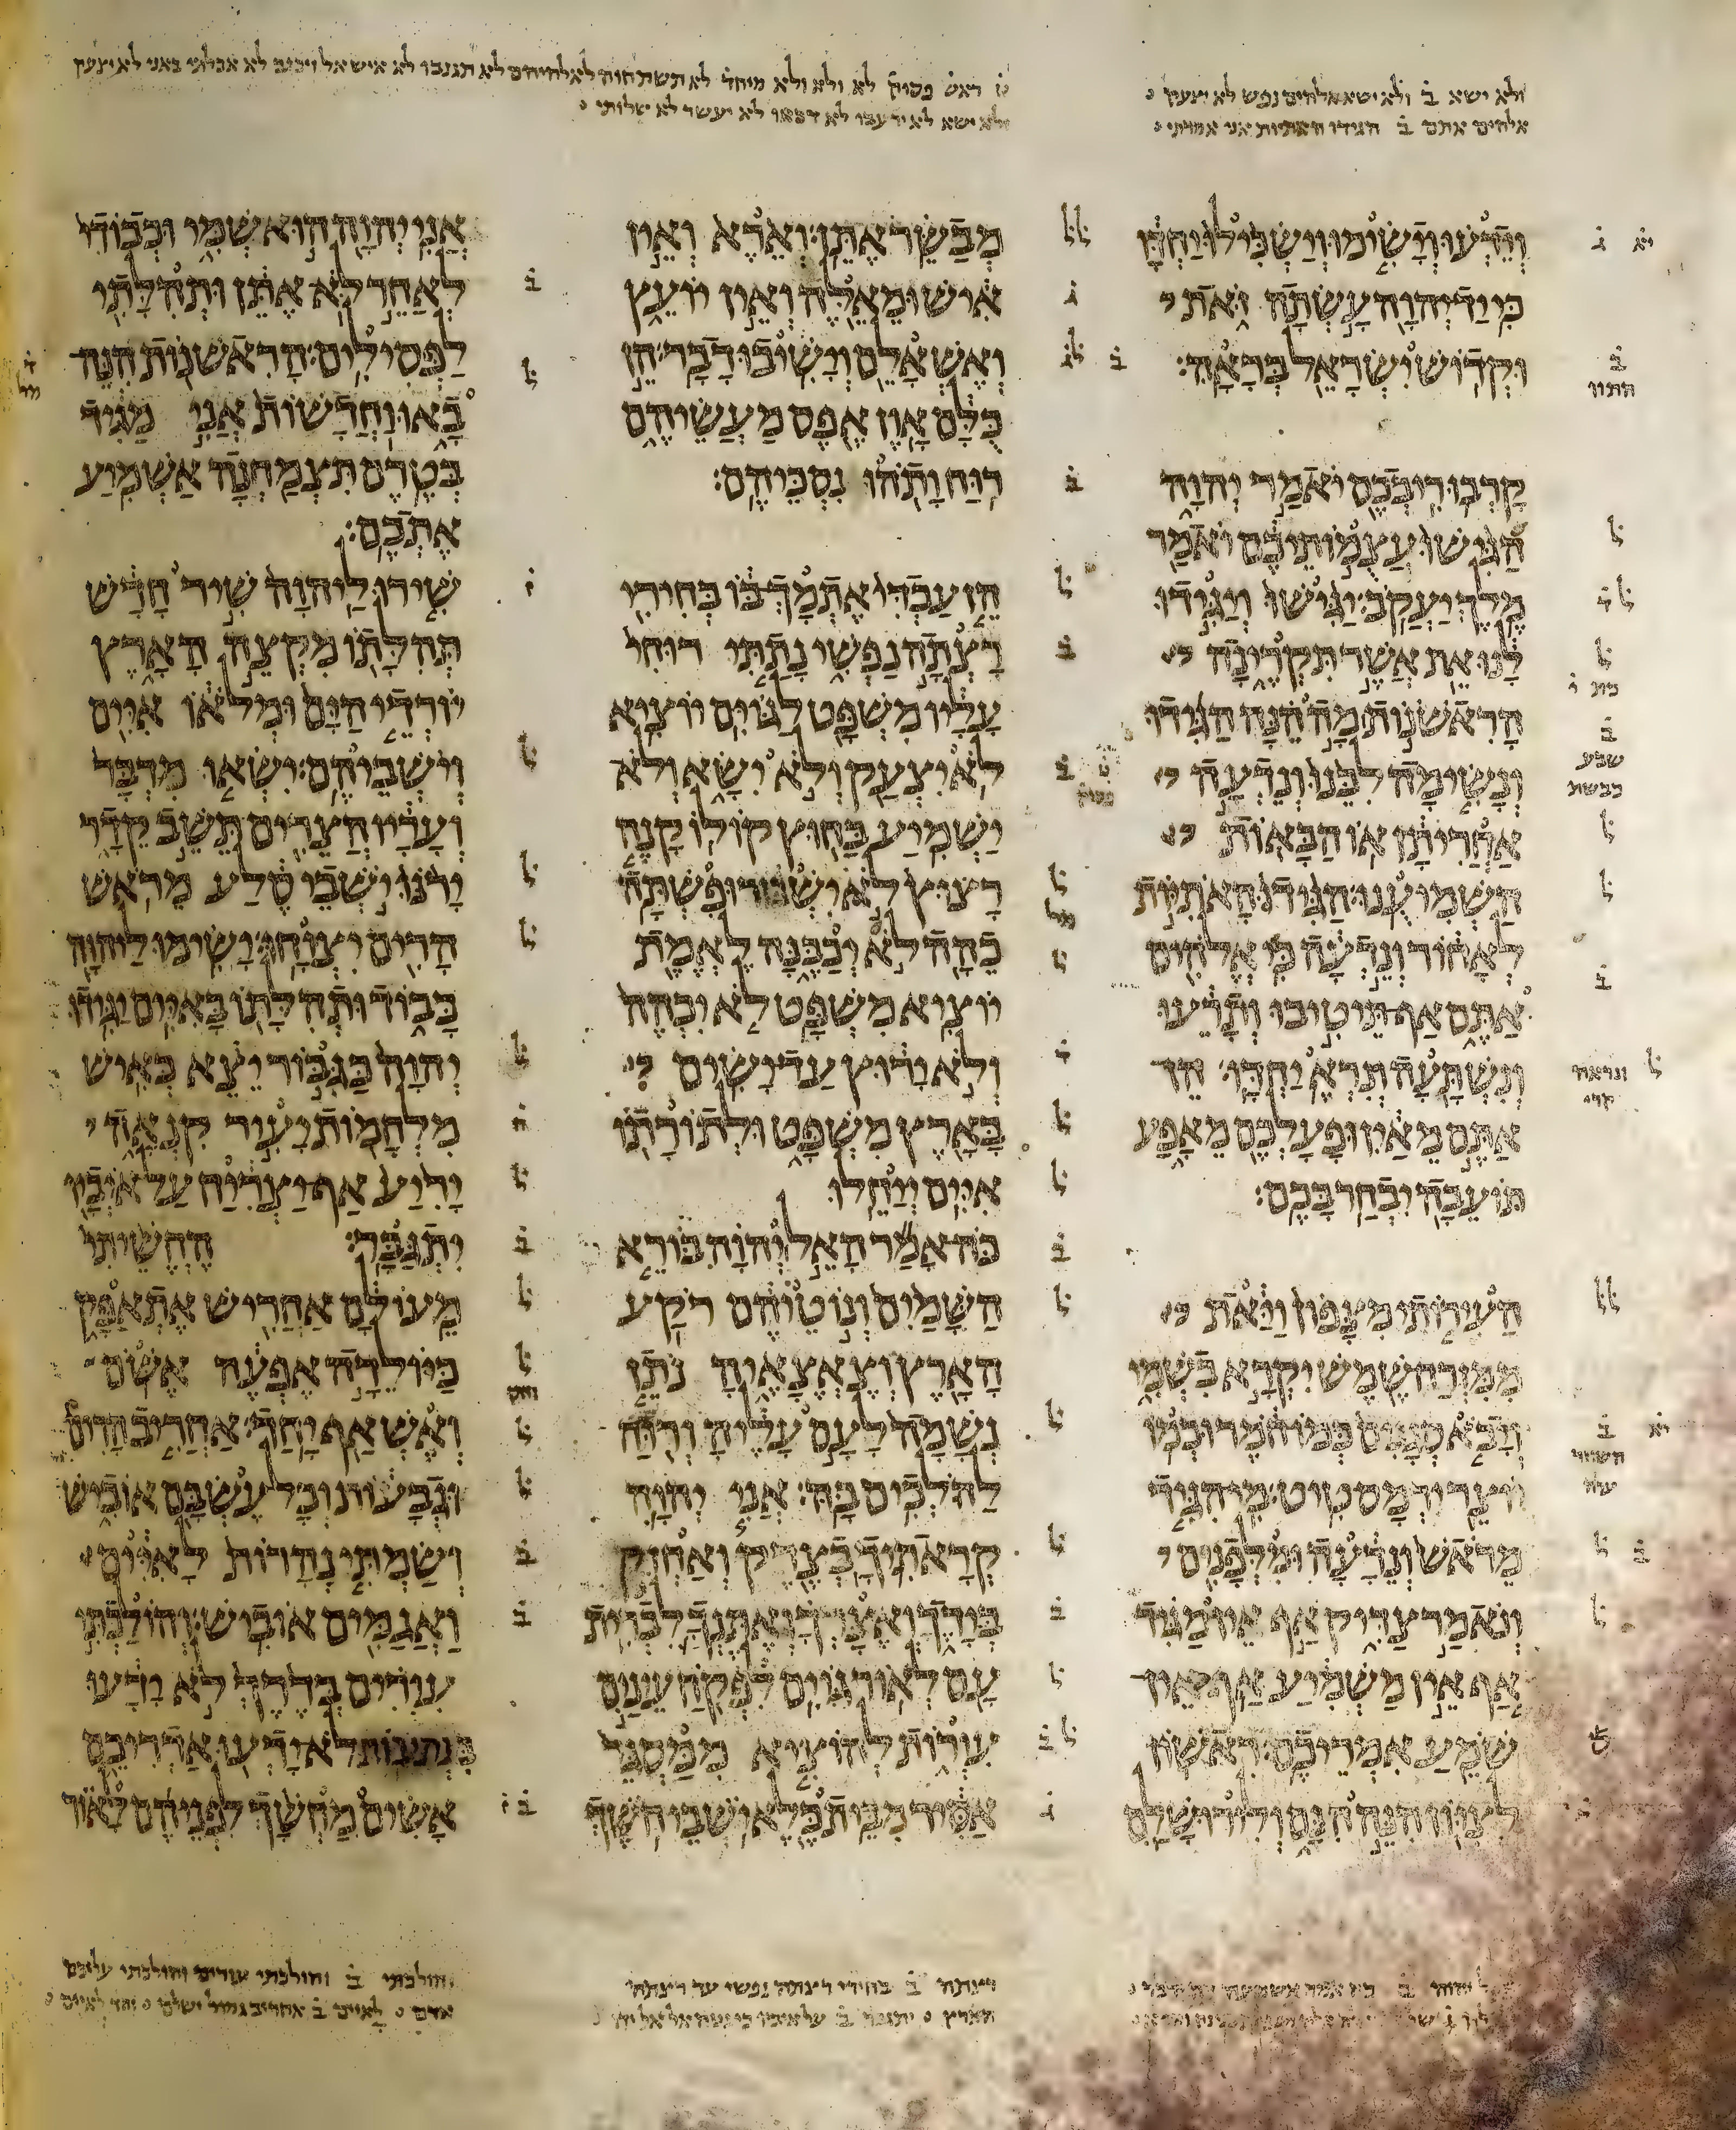 ולא ישא ב ולא ישא אלהים נפש לא יצעק
אלהים אתם ב הגידו האתיות אני אמרתי
ראש פסוק לא ולא ולא מיחד לא תשתחוה לאלהיהם לא תגנבו לא איש אל ויכזב לא אכלתי באני לא יצעק
ולא ישא לא ירעבו לא יעשר לא שלותי
וידעו וישימו וישכילו יחדו
כי יד יהוה עשתה זאת
וקדוש ישראל בראה׃
קרבו ריבכם יאמר יהוה
הגישו עצמותיכם יאמר
מלך יעקב׃ יגישו ויגידו
לנו את אשר תקרינה
הראשנות מה הנה הגידו
ונשימה לבנו ונדעה
אחריתן או הבאות
השמיענו׃ הגידו האתיות
לאחור ונדעה כי אלהים
אתם אף תיטיבו ותרעו
ונשתעה ונרא יחדו׃ הן
אתם מאין ופעלכם מאפע
תועבה יבחר בכם׃
העירותי מצפון ויאת
ממזרח שמש יקרא בשמי
ויבא סגנים כמו חמר וכמו
יוצר ירמס טיט׃ מי הגיד
מראש ונדעה ומלפנים
ונאמר צדיק אף אין מגיד
אף אין משמיע אף אין
שמע אמריכם׃ ראשון
לציון הנה הנם ולירושלם
מבשר אתן׃ וארא ואין
איש ומאלה ואין יועץ
ואשאלם וישיבו דבר׃ הן
כלם און אפס מעשיהם
רוח ותהו נסכיהם׃
הן עבדי אתמך בו בחירי
רצתה נפשי נתתי רוחי
עליו משפט לגוים יוציא׃
לא יצעק ולא ישא ולא
ישמיע בחוץ קולו׃ קנה
רצוץ לא ישבור ופשתה
כהה לא יכבנה לאמת
יוציא משפט׃ לא יכהה
ולא ירוץ עד ישים
בארץ משפט ולתורתו
איים ייחלו׃
כה אמר האל יהוה בורא
השמים ונוטיהם רקע
הארץ וצאצאיה נתן
נשמה לעם עליה ורוח
להלכים בה׃ אני יהוה
קראתיך בצדק ואחזק
בידך ואצרך ואתנך לברית
עם לאור גוים׃ לפקח עינים
עורות להוציא ממסגר
אסיר מבית כלא ישבי חשך׃
אני יהוה הוא שמי וכבודי
לאחר לא אתן ותהלתי
לפסילים׃ הראשנות הנה
באו וחדשות אני מגיד
בטרם תצמחנה אשמיע
אתכם׃
שירו ליהוה שיר חדש
תהלתו מקצה הארץ
יורדי הים ומלאו איים
וישביהם׃ ישאו מדבר
ועריו חצרים תשב קדר
ירנו ישבי סלע מראש
הרים יצוחו׃ ישימו ליהוה
כבוד ותהלתו באיים יגידו׃
יהוה כגבור יצא כאיש
מלחמות יעיר קנאה
יריע אף יצריח על איביו
יתגבר׃ החשיתי
מעולם אחריש אתאפק
כיולדה אפעה אשם
ואשאף יחד׃ אחריב הרים
וגבעות וכל עשבם אוביש
ושמתי נהרות לאיים
ואגמים אוביש׃ והולכתי
עורים בדרך לא ידעו
בנתיבות לא ידעו אדריכם
אשים מחשך לפניהם לאור
רצתה ב בחירי רצתה נפשי עד רצתה
הארץ יתגבר ב על איביו כי נטה אל אל ידו
והולכתי ב והולכתי עורים והולכתי עליכם
אדם לאיים ב אחריב גמול ישלם